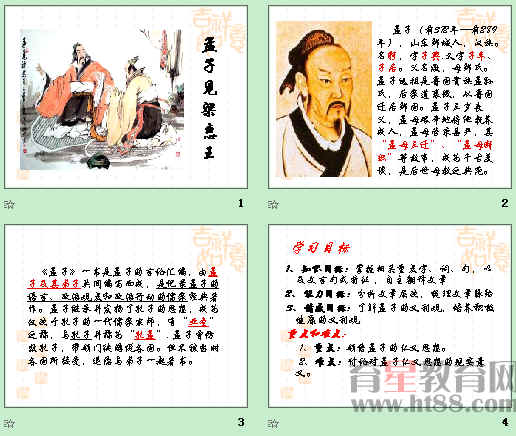 孟子见梁惠王
1
孟子(前372年—前289
年),山东邹城人,汉族。
名轲,字子舆,又字子车、
子居。父名激,母邹氏。
孟子远祖是鲁国贵族孟孙
氏,后家道衰微,从鲁国
迁居邹国。孟子三岁丧
父,孟母艰辛地将他抚养
成人,孟母管束甚严,其
“孟母三迁”、“孟母断
织”等故事,成为千古美
谈,是后世母教之典范。
2
《孟子》一书是孟子的言论汇编,由孟
子及其弟子共同编写而成,是记录孟子的
语言、政治观点和政治行动的儒家经典著
作。孟子继承并发扬了孔子的思想,成为
仅次于孔子的一代儒家宗师,有“亚圣”
之称,与孔子并称为“孔孟”。孟子曾仿
效孔子,带领门徒游说各国。但不被当时
各国所接受,退隐与弟子一起著书。
3
学习目标
1、知识目标:掌握相关重点字、词、句,以
及文言句式特征,自主翻译文章
2、能力目标:分析文章层次,梳理文章脉络
3、情感目标:了解孟子的义利观,培养积极
健康的义利观。
重点和难点:
1、重点:领悟孟子的仁义思想。
2、难点:讨论对孟子仁义思想的现实意
义。
4
育星教育网
www.ht88.com